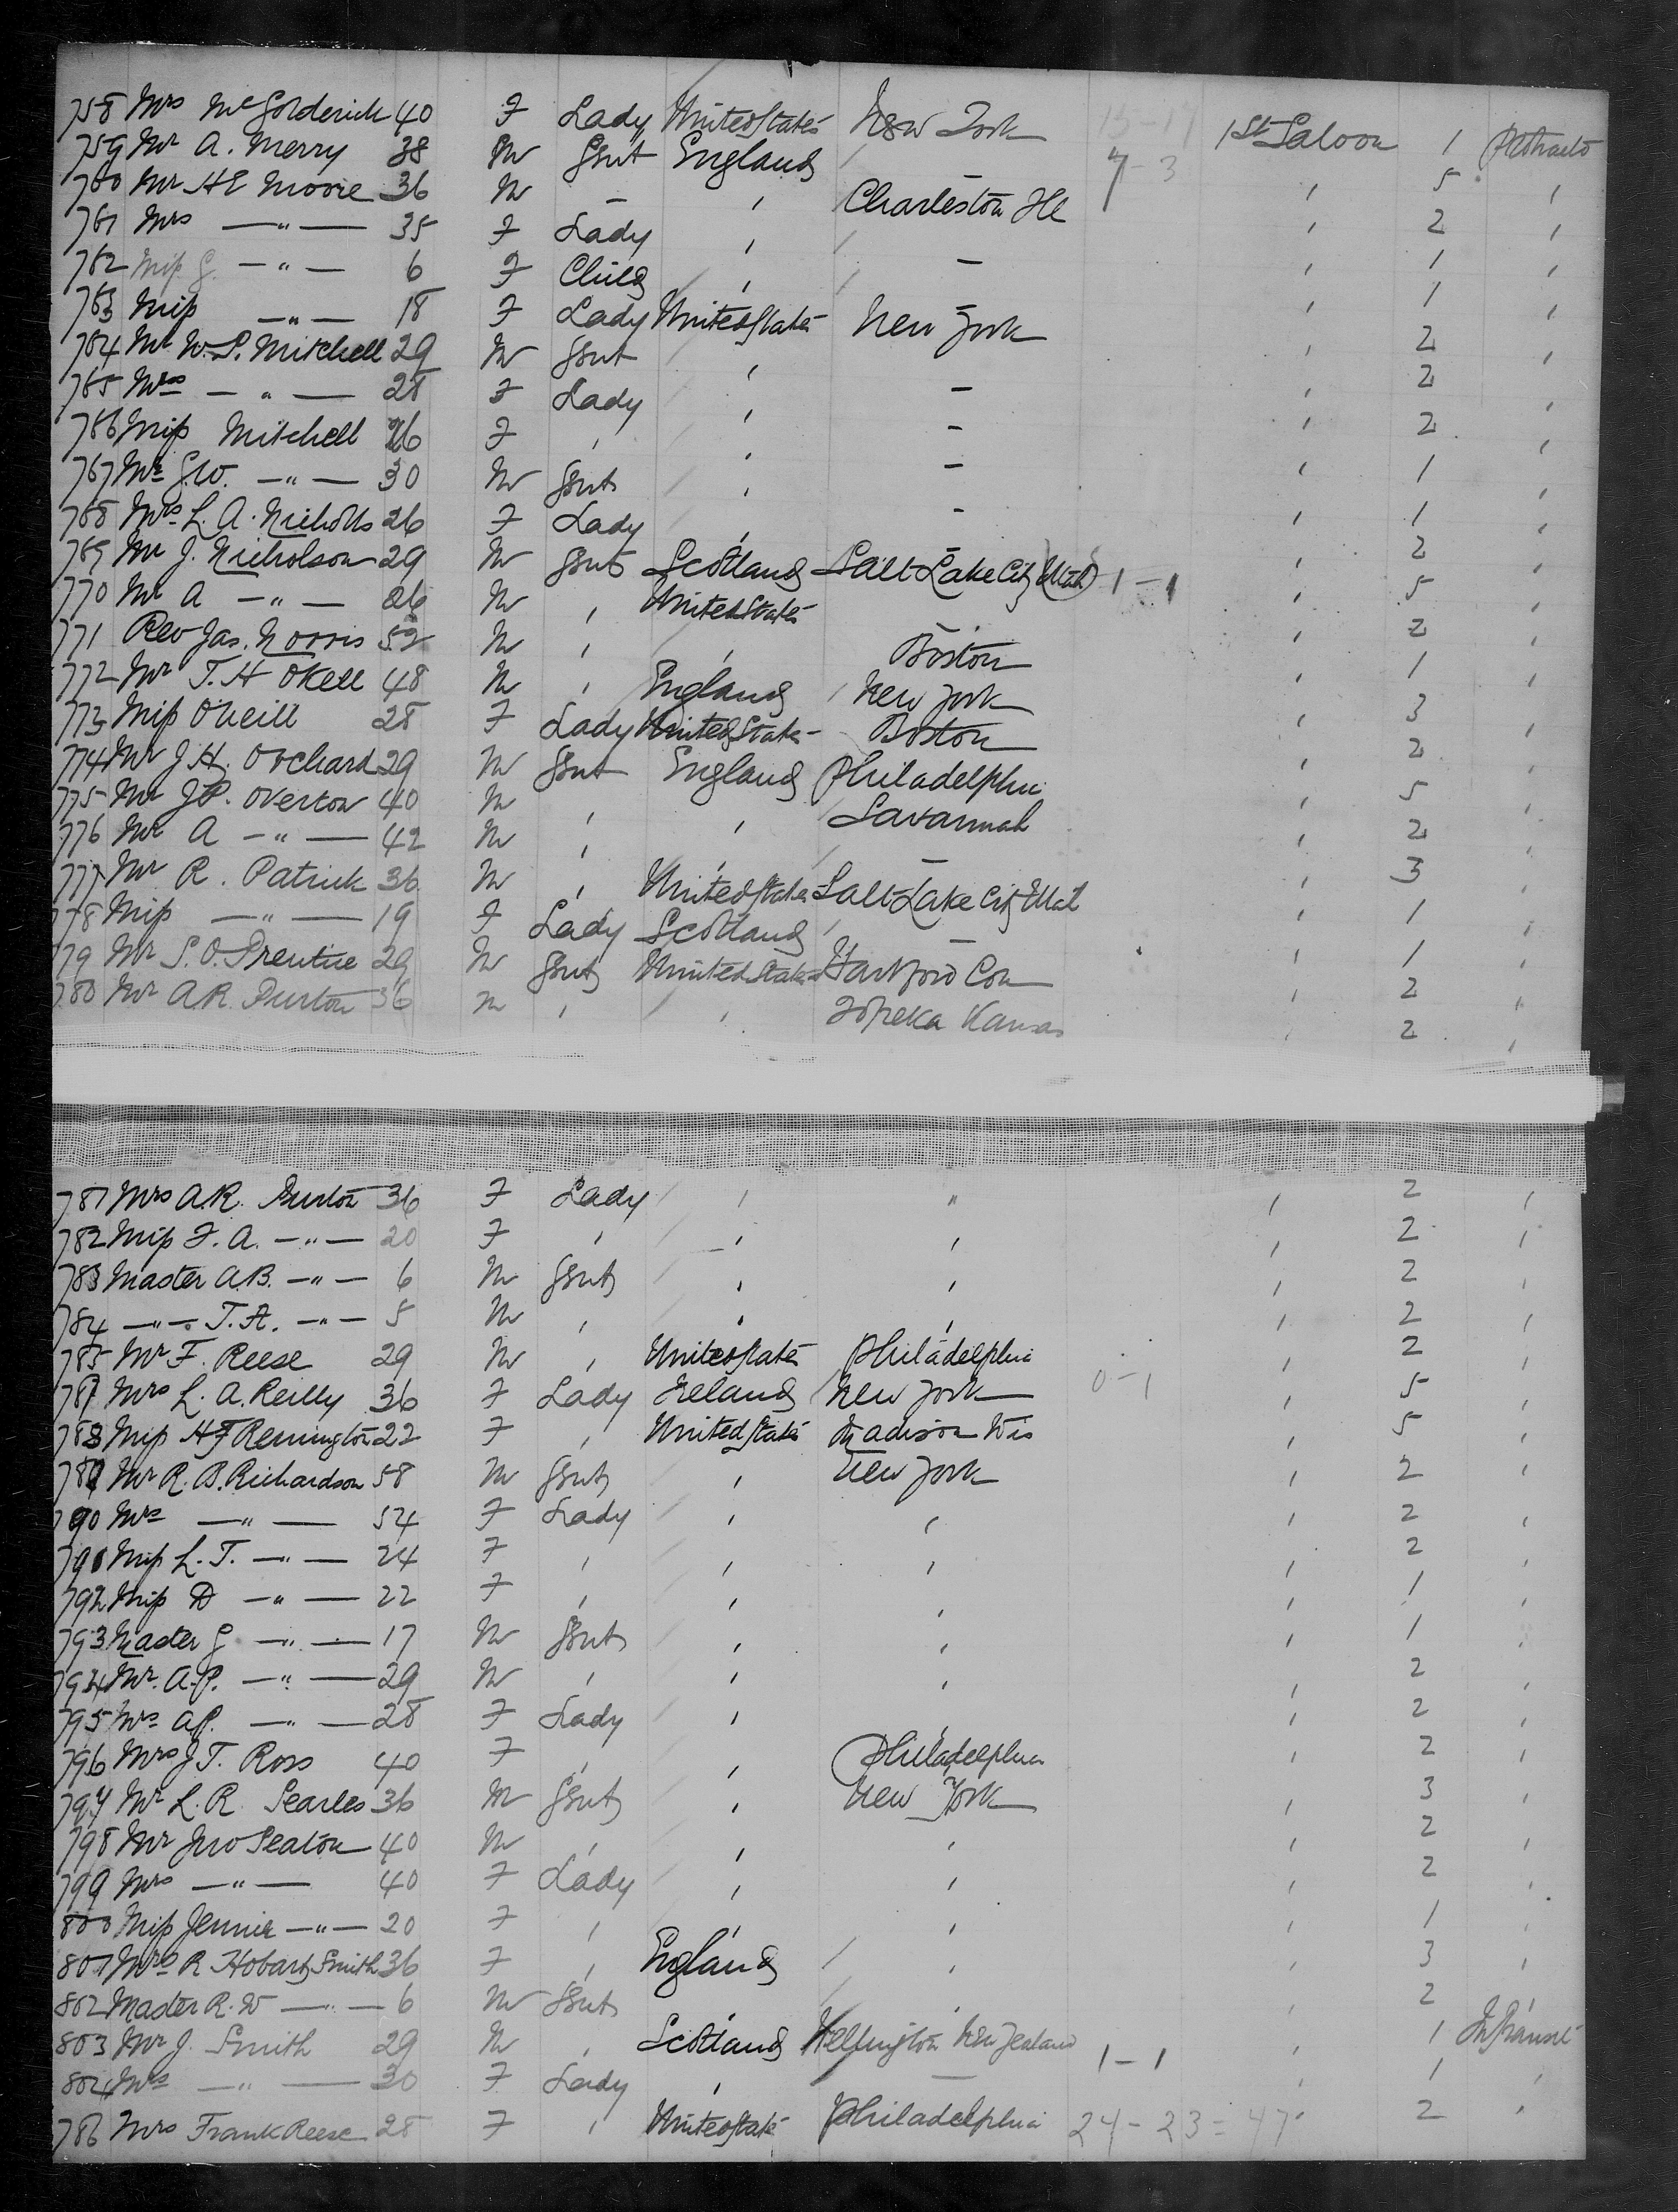 758 Mrs McGolderick 40 F Lady United States New York 13-17 1st Saloon 1 Protracted
759 Mr A. Merry 38 M Gent England / - 7-3 ' 5 '
760 Mr H E Moore 36 M - ' Charleston ' 2 '
761 Mrs —"— 35 F Lady ' / ' 1 '
762 Miss G. —"— 6 F Child ' / - ' 1 '
763 Miss —"— 18 F Lady United States New York ' 2 '
764 Mr W. S. Mitchell 29 M Gent ' ' 2 '
765 Mrs —"— 28 F Lady ' - ' 2 '
766 Miss Mitchell 26 F ' ' - ' 1 '
767 Mr G.W. —"— 30 M Gent ' - ' 1 '
768 Mrs L. A. Nicholls 26 F Lady ' - ' 2 '
769 Mr J. Nicholson 29 M Gent Scotland Salt Lake City Utah 1-1 ' 5 '
770 Mr A —"— 26 M ' United States ' 2 '
771 Rev Jas. Norris 52 M ' ' Boston ' 1 '
772 Mr T. H Okell 48 M ' England / New York ' 3 '
773 Miss O'Neill 28 F Lady United States Boston ' 2 '
774 Mr J. H. Orchard 29 M Gent England Philadelphia ' 5 '
775 Mr J P. Overton 40 M ' ' / Savannah ' 2 '
776 Mr A —"— 42 M ' ' / - ' 3 '
777 Mr R. Patrick 36 M ' United States Salt Lake City Utah ' 1 '
778 Miss —"— 19 F Lady Scotland / - ' 1 '
779 Mr S. O. Prentice 29 M Gent United States Hartford Con ' 2 '
780 Mr A.R. Purton 36 M ' ' Topeka Kansas ' 2 '
781 Mrs A.R. Purton 36 F Lady ' " ' 2 '
782 Miss F. A. —"— 20 F ' ' ' ' 2 '
783 Master A.B. —"— 6 M Gent ' ' ' 2 '
784 —"— T.A. —"— 5 M ' ' ' ' 2 '
785 Mr F. Reese 29 M ' United States Philadelphia ' 2 '
787 Mrs L. A. Reilly 36 F Lady Ireland / New York 0-1 ' 5 '
788 Miss H F Remington 22 F ' United States Madison Wis ' 5 '
789 Mr R. B. Richardson 58 M Gent ' New York ' 2 '
790 Mrs —"— 54 F Lady ' ' ' 2 '
791 Miss L. T. —"— 24 F ' ' ' ' 2 '
792 Miss D —"— 22 F ' ' ' ' 1 '
793 Master G —"— 17 M Gent ' ' ' 1 '
794 Mr. A.P. —"— 29 M ' ' ' ' 2 '
795 Mrs A.P. —"— 28 F Lady ' ' 2 '
796 Mrs J T. Ross 40 F ' ' Philadelphia ' 2 '
797 Mr L. R. Searles 36 M Gent ' New York ' 3 '
798 Mr Jno Seaton 40 M ' ' ' ' 2 '
799 Mrs —"— 40 F Lady ' ' ' 2 '
800 Miss Jennie —"— 20 F ' ' ' ' 1 '
801 Mrs R Hobart Smith 36 F ' England / ' ' 3 '
802 Master R. W —"— 6 M Gent ' / ' ' 2 '
803 Mr J. Smith 29 M ' Scotland Wellington New Zealand 1-1 ' 1 In Transit
804 Mrs —"— 30 F Lady ' — ' 1 '
786 Mrs Frank Reese 28 F ' United States Philadelphia 24-23=47 ' 2 '